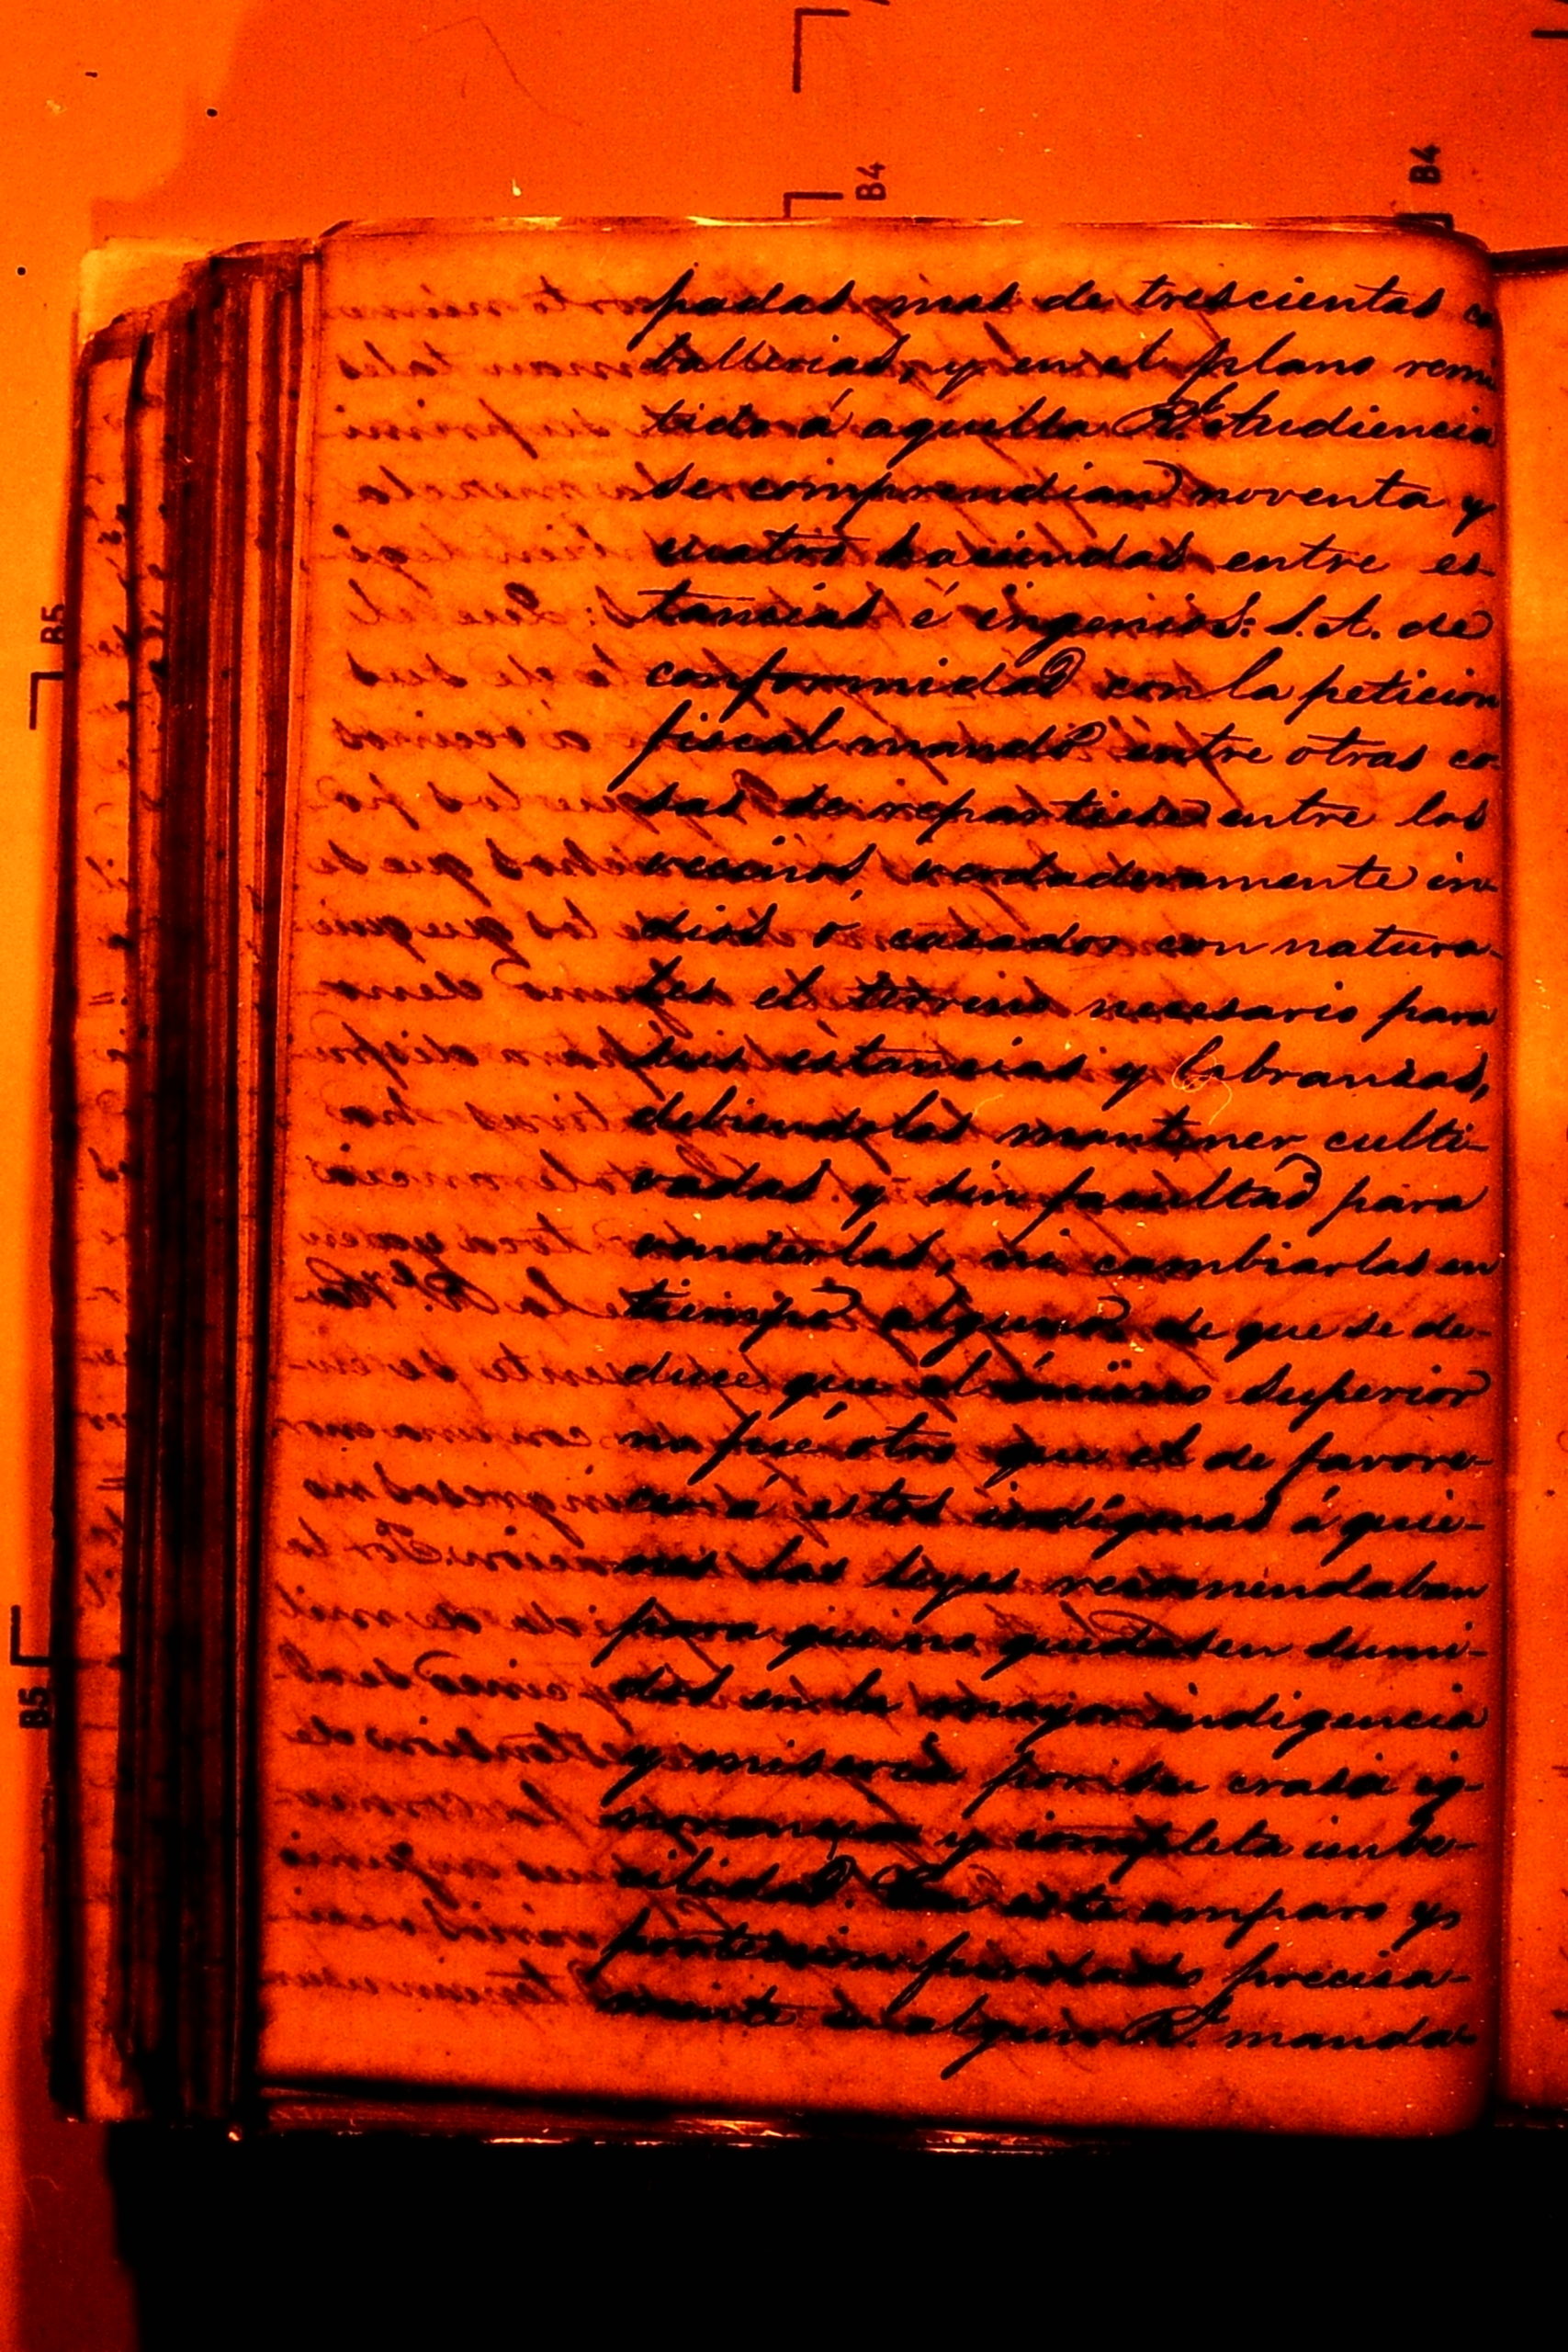 B4
B4
B5
B5
padas mas de trescientas ca
ballerias, y en el plano remi
tido á aquella Rl. Audiencia
se comprendian noventa y
cuatro haciendas entre es-
tancias é ingenios: S. A. de
conformidad con la peticion
fiscal mandó entre otras co-
sas se repartiese entre los
vecinos, verdaderamente in-
dios ó casados con natura-
les el terreno necesario para
sus estancias y labranzas,
debiendolas mantener culti-
vadas y sin facultad para
venderlas, ni cambiarlas en
tiempo alguno, de que se de-
duce que el ánimo superior
no fué otro que el de favore-
cer á estos indígenas á quie-
nes las leyes recomendaban
para que no quedasen sumi-
dos en la mayor indigencia
y miseria por su crasa ig-
norancia y completa imbe-
cilidad. En este amparo y
proteccion fundado precisa-
mente en algun Rl. manda-